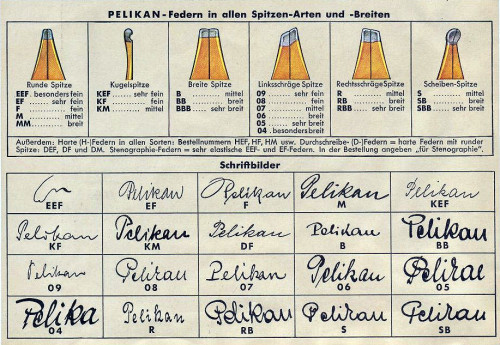 PELIKAN-Federn in allen Spitzen-Arten und -Breiten
Runde Spitze
EEF besonders fein
EF ........ sehr fein
F .................. fein
M .............. mittel
MM ............ breit
Kugelspitze
KEF ...... sehr fein
KF ............... fein
KM ............ mittel
Breite Spitze
B ............ mittel
BB ............ breit
BBB .... sehr breit
Linksschräge Spitze
09 ........ sehr fein
08 ................ fein
07 .............. mittel
06 .............. breit
05 ...... sehr breit
04 ...... sehr breit
Rechtsschräge Spitze
R .............. mittel
RB .............. breit
RBB .... sehr breit
Scheiben-Spitze
S .............. mittel
SB .............. breit
SBB .... sehr breit
Außerdem: Harte (H-)Federn in allen Sorten: Bestellnummern HEF, HF, HM usw. Durchschreibe- (D-)Federn = harte Federn mit runder
Spitze: DEF, DF und DM. Stenographie-Federn = sehr elastische EEF- und EF-Federn. In der Bestellung angeben „für Stenographie".
Schriftbilder
EEF
Pelikan
EF
Pelikan
F
Pelikan
M
Pelikan
KEF
Pelikan
KF
Pelikan
KM
Pelikan
DF
Pelikan
B
Pelikan
BB
Pelikan
09
Pelikan
08
Pelikan
07
Pelikan
06
Pelikan
05
Pelika
04
Pelikan
R
Pelikan
RB
Pelikan
S
Pelikan
SB